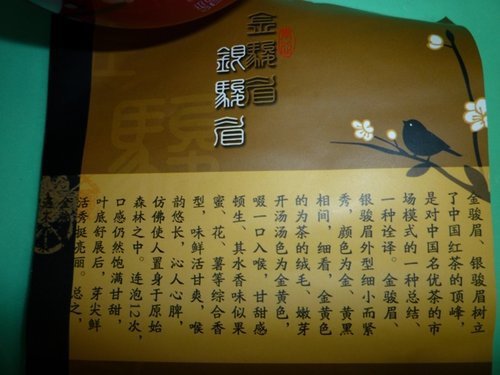 金駿眉
銀駿眉
金骏眉、银骏眉树立
了中国红茶的顶峰,
是对中国名优茶的市
场模式的一种总结、
一种诠译。金骏眉、
银骏眉外型细小而紧
秀,颜色为金、黄黑
相间,细看,金黄色
的为茶的绒毛、嫩芽
开汤汤色为金黄色,
啜一口入喉,甘甜感
顿生、其水香味似果
蜜、花、薯等综合香
型,味鲜活甘爽,喉
韵悠长,沁人心脾,
仿佛使人置身于原始
森林之中。连泡12次,
口感仍然饱满甘甜,
叶底舒展后,芽尖鲜
活秀挺亮丽。总之,